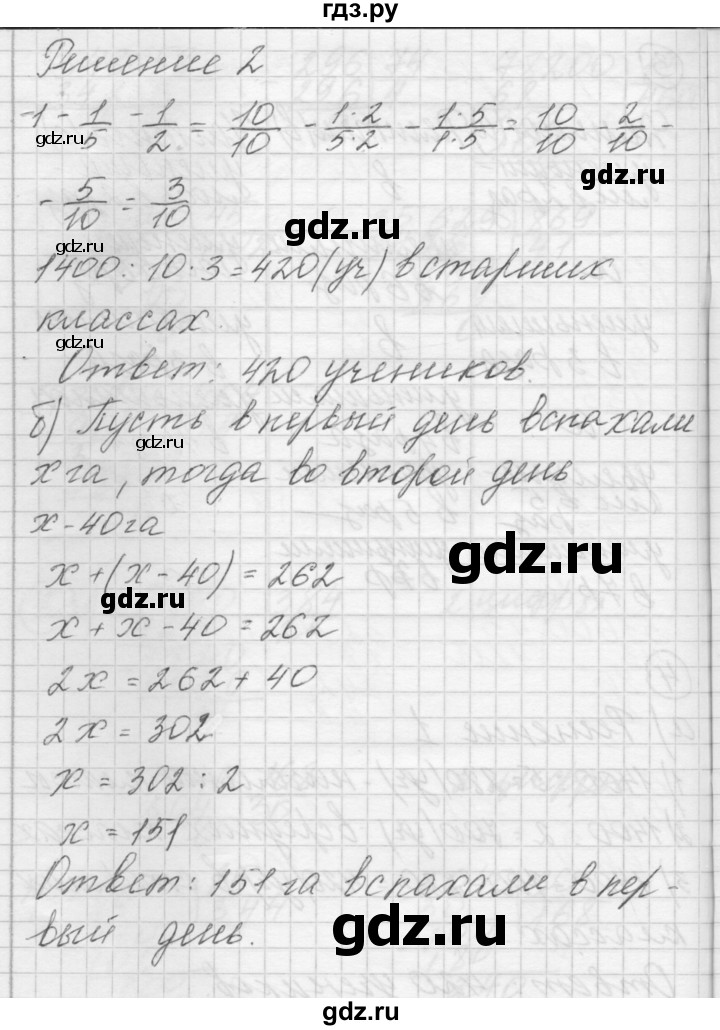 гдз.ру
Решение 2
1 - 1/5 - 1/2 = 10/10 - 1·2/5·2 - 1·5/1·5 = 10/10 - 2/10 -
gdz.ru
gdz.ru
- 5/10 = 3/10
gdz.ru
gdz.ru
1400 : 10 · 3 = 420 (уч) в старших
классах.
gdz.ru
Ответ: 420 учеников.
б) Пусть в первый день вспахали
gdz.ru
x га, тогда во второй день
x - 40 га
gdz.ru
x + (x - 40) = 262
gdz.ru
x + x - 40 = 262
2x = 262 + 40
2x = 302
x = 302 : 2
x = 151
Ответ: 151 га вспахали в пер-
gdz.ru
вый день.
gdz.ru